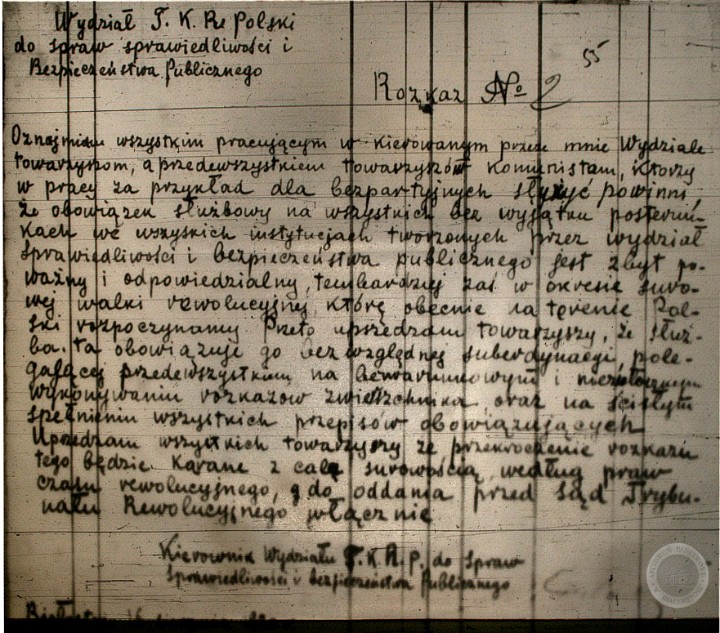 Wydział T. K. Re Polski
do spraw sprawiedliwości i
Bezpieczeństwa Publicznego
55
Rozkaz No 2
Oznajmiam wszystkim pracującym w kierowanym przeze mnie Wydziale
towarzyszom, a przedewszystkiem towarzyszom komunistam, ktorzy
w pracy za przykład dla bezpartyjnych służyć powinni,
że obowiązek służbowy na wszystkich bez wyjątku posterun-
kach we wszyskich instytucjach tworzonych przez wydział
sprawiedliwości i bezpieczeństwa publicznego jest zbyt po-
ważny i odpowiedzialny, tembardziej zaś w okresie suro-
wej walki rewolucyjnej, którą obecnie na terenie Pol-
ski rozpoczynamy. Przeto uprzedzam towarzyszy, że służ-
ba ta obowiązuje go bezwzględnej suberdynacji, pole-
gającej przedewszystkim na bewarunkowym i niezwłocznym
wykonywaniu rozkazów zwierzchnika, oraz na ścisłym
spełnieniu wszystkich przepisów obowiązujących
Uprzedzam wszystkich towarzyszy że przekroczenie rozkazu
tego będzie karane z całą surowością, według praw
czasu rewolucyjnego, do oddania przed sąd Trybu-
nału Rewolucyjnego włącznie
Kierownik Wydziału T. K. R. P. do spraw
Sprawiedliwości i bezpieczeństwa Publicznego